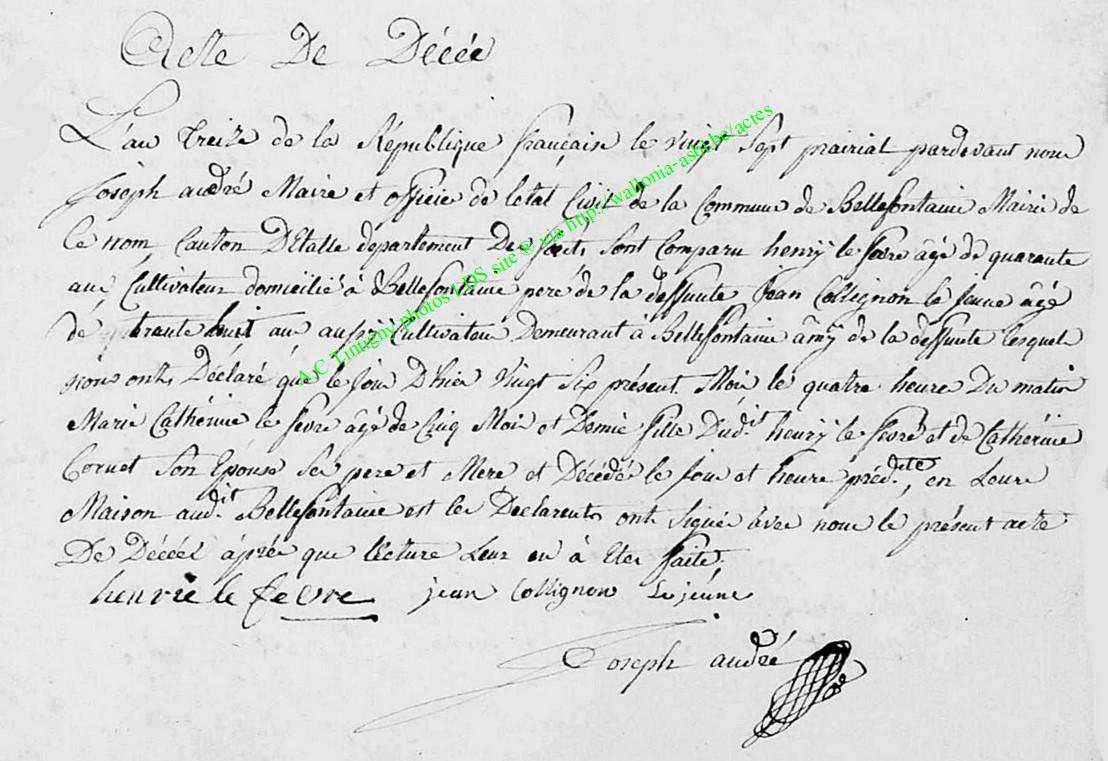 Acte De Décée
L'an treize de la République française le vingt Sept prairial pardevant nous
Joseph andré Maire et officié de letat Civil de la Commune de Bellefontaine Mairi de
Ce nom, Canton D'Etalle département De forêts Sont Comparu henrÿ le fevre âgé de quarante
ans Cultivateur domicilié à Bellefontaine pere de la deffunte Jean Collignon le Jeune âgé
de trante huit an aussÿ Cultivateur Demeurant à Bellefontaine âmÿ de la deffunte lesquel
nous onts Déclaré que le Jour D'hier Vingt Six présent Moi le quatre heure Du matin
Marie Cathérine le fevre âgé de Cinq Moi et Demie fille Dudit henrÿ le fevre et de Cathérine
Cornet Son Epouse Ses pere et Mere et Décédé le Jour et heure prédite, en Leure
Maison audit Bellefontaine est les Declarents ont Signé avec nous le présent acte
De Décéés àprée que lecture Leur en à Eter faite,
henrie le fevre jean Collignon Le jeune
Joseph andré
A.C Tintigny photos LDS site @ via http://wallonia-asbl.be/actes